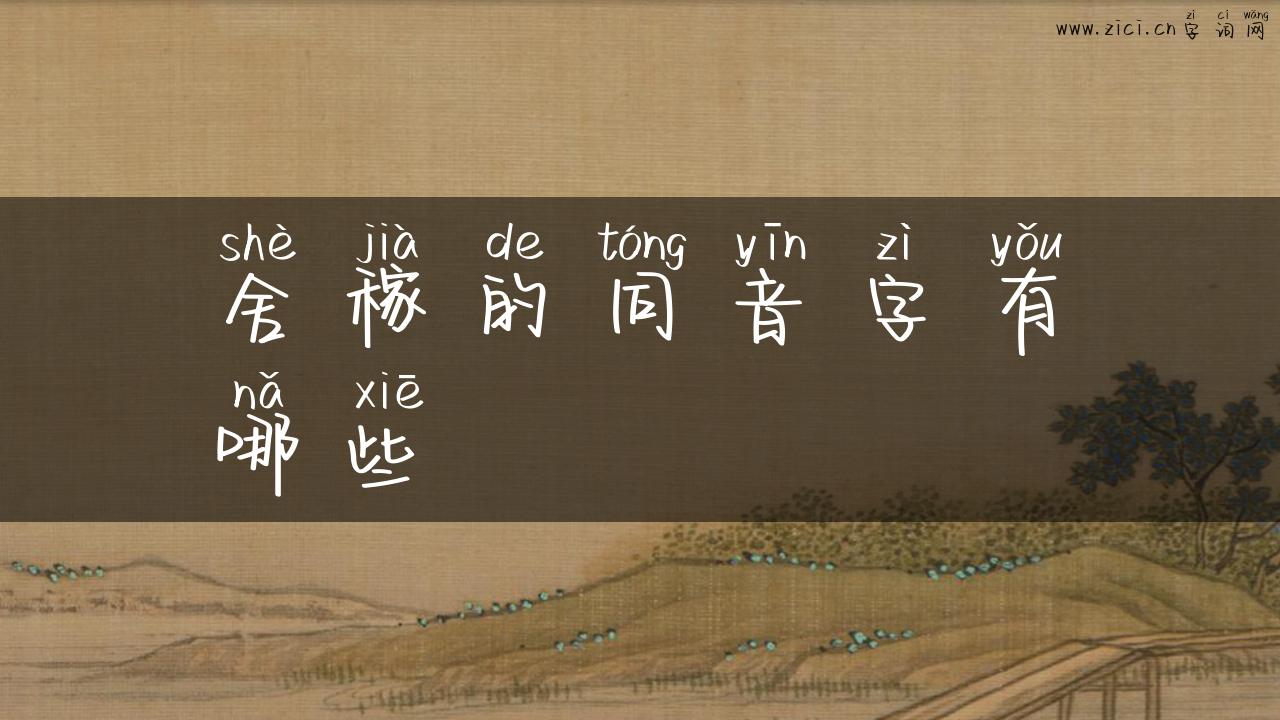 zì cí wǎng
www.zici.cn 字 词 网
shè jià de tóng yīn zì yǒu
舍 稼 的 同 音 字 有
nǎ xiē
哪 些